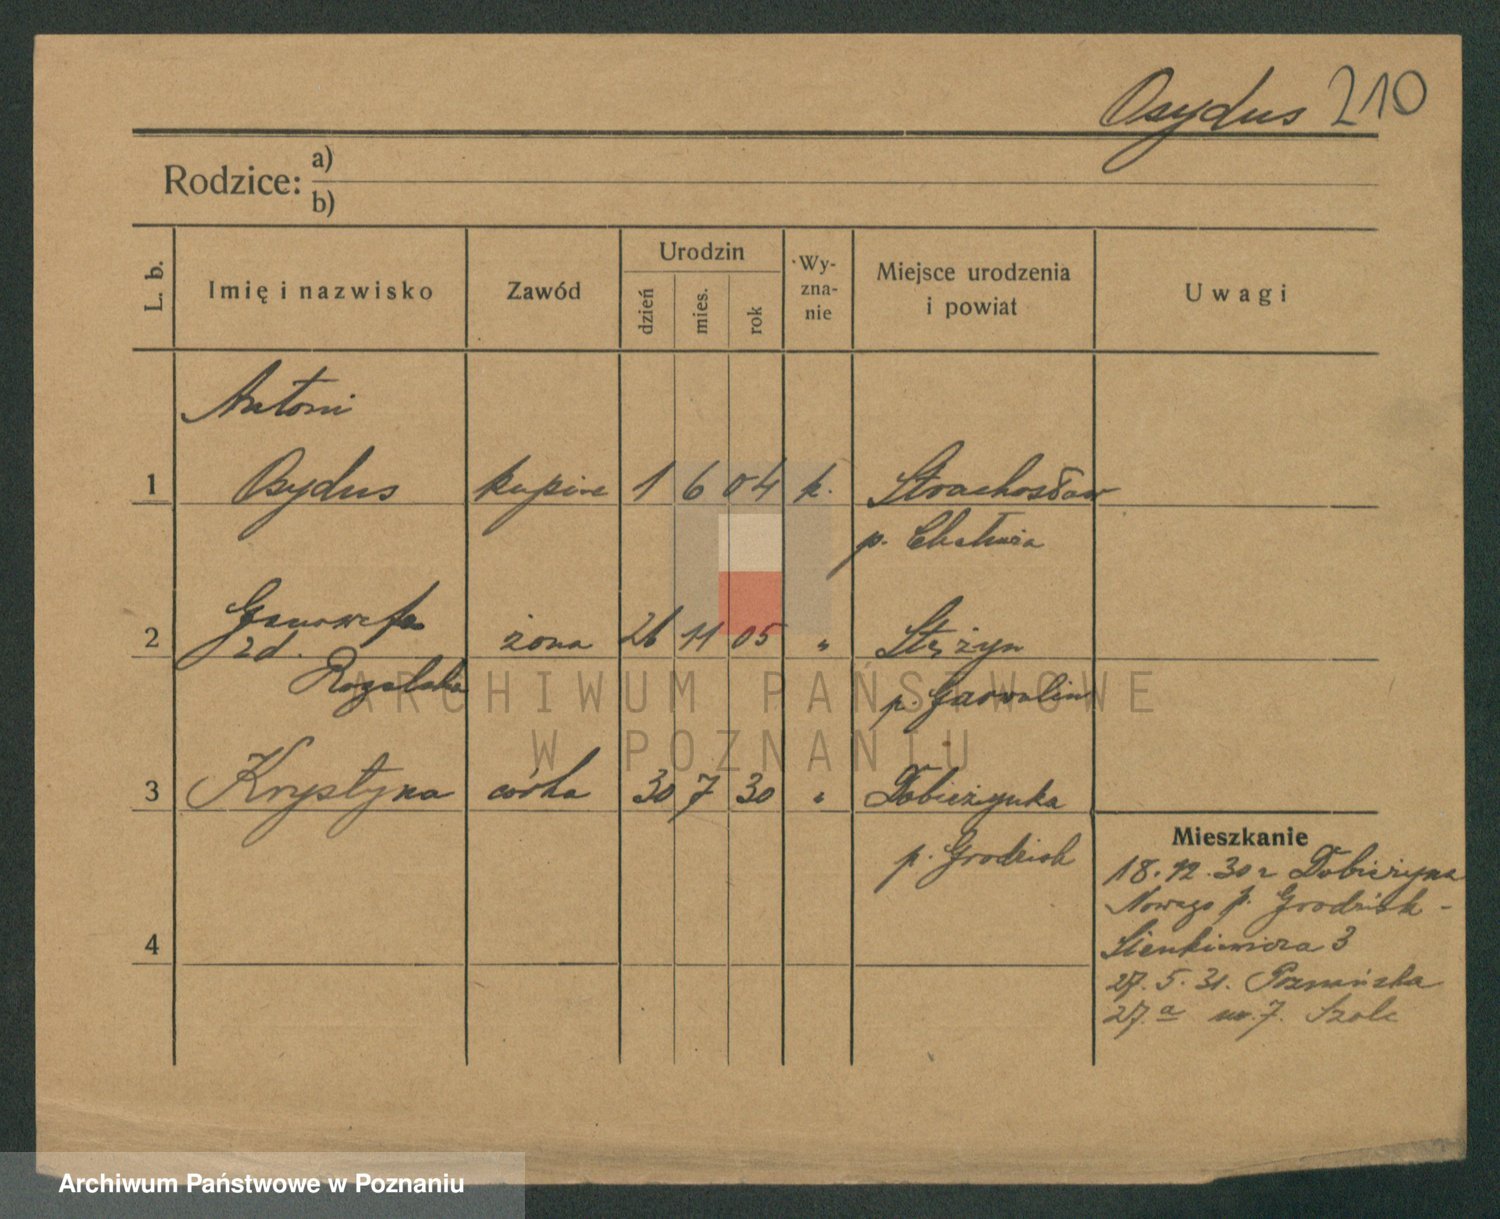 Osydus 210
Rodzice: a)
b)
L. b.
Imię i nazwisko
Zawód
Urodzin
dzień
mies.
rok
Wy-
zna-
nie
Miejsce urodzenia
i powiat
Uwagi
Antoni
1 Osydus kupiec 1 6 04 k. Strachosław
p. Chełmża
Genowefa
2 zd. żona 26 11 05 " Stężyn
Rogalska p. Garwolin
3 Krystyna córka 30 7 30 " Dobieżynka
p. Grodzisk
Mieszkanie
18.12.30 r Dobieżyna
Nowego p. Grodzisk -
4 Sienkiewicza 3
27.5.31. Poznańska
27.a m.7. Szolc
ARCHIWUM PAŃSTWOWE
W POZNANIU
Archiwum Państwowe w Poznaniu